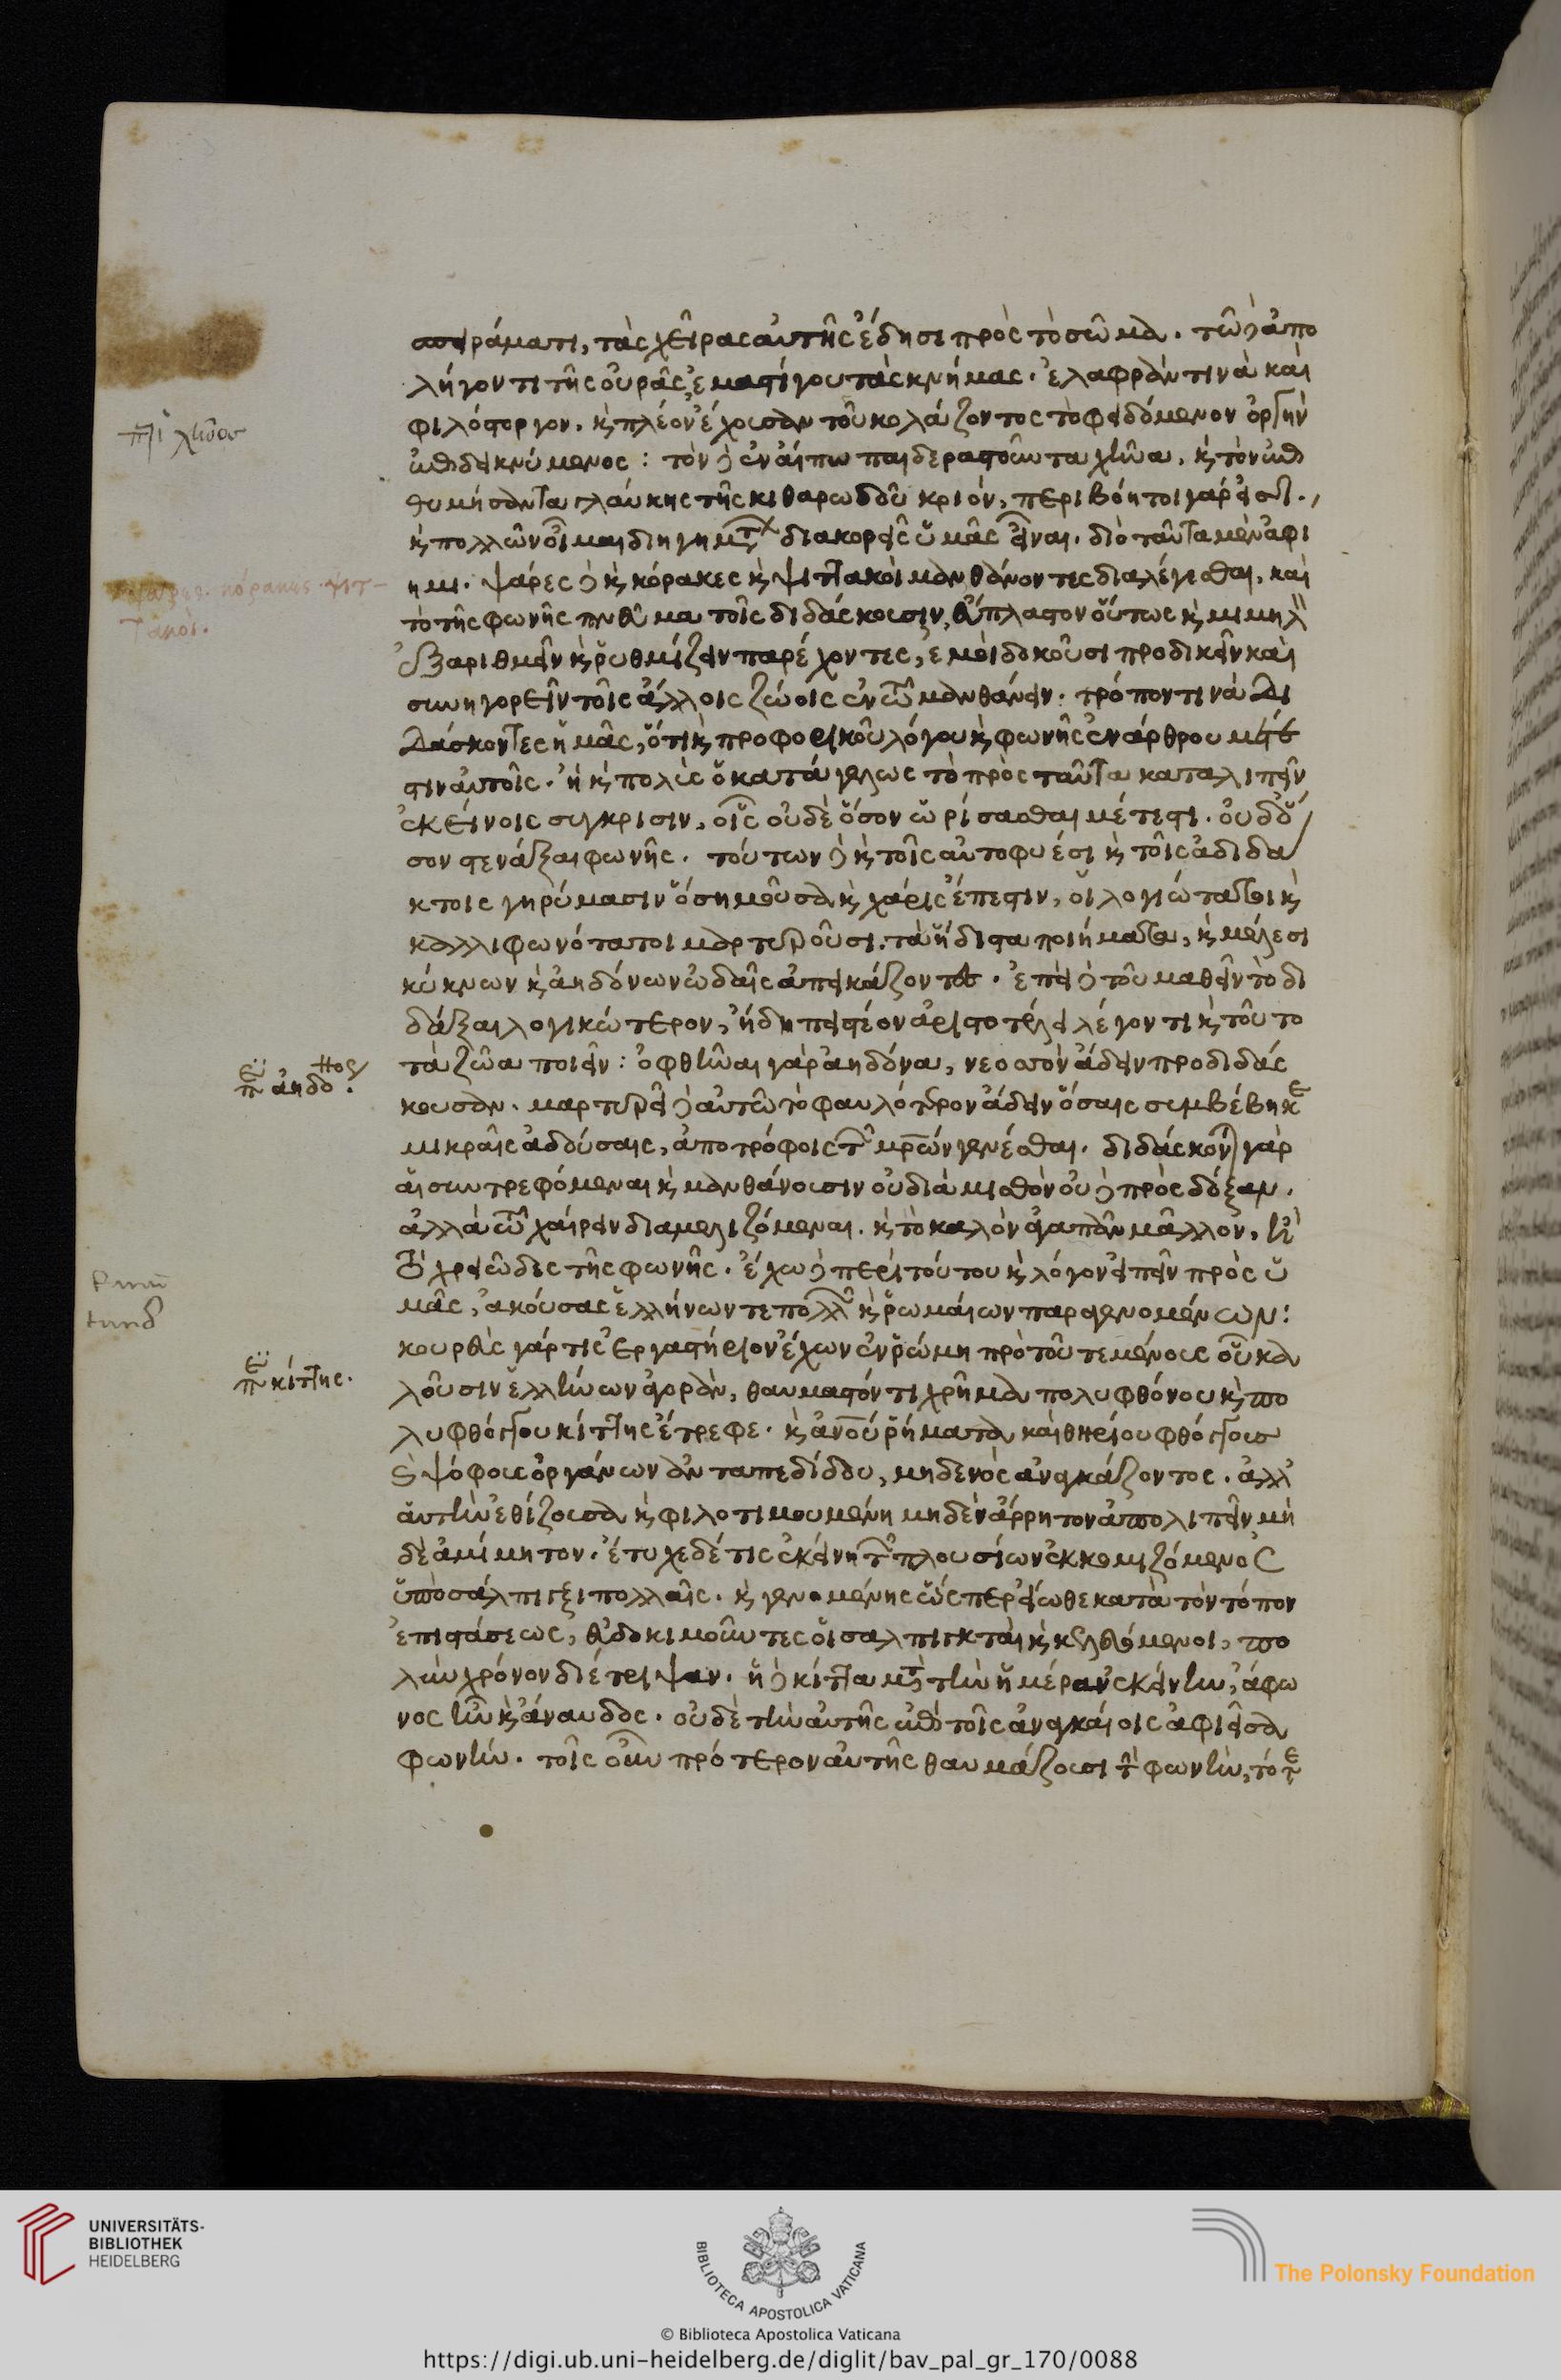 σπειράματι, τὰς χεῖρας αὐτῆς ἔδησε πρὸς τὸ σῶμα. τῶ δὲ ἀπο
λήγοντι τῆς οὐρᾶς, ἐμαστίγου τὰς κνήμας. ἐλαφρὰν τινὰ καὶ
φιλόστοργον. καὶ πλέον ἔχουσαν τοῦ κολάζοντος τὸ φειδόμενον ὀργὴν
ἐνδεικνύμενος: τὸν δὲ ἐν αἰγίπω παιδεραστοῦντα χῆνα. καὶ τὸν ἐπι
θυμήσαντα γλαύκης τῆς κιθαρωδοῦ κριόν, περιβόητοι γάρ εἰσι.
καὶ πολλῶν οἶμαι διηγημάτων διακορεῖς ὑμᾶς εἶναι. διὸ ταῦτα μὲν ἀφί
ημι. ψάρες δὲ καὶ κόρακες καὶ ψιττακοὶ μανθάνοντες διαλέγεσθαι, καὶ
τὸ τῆς φωνῆς πνεῦμα τοῖς διδάσκουσιν, εὔπλαστον οὕτως καὶ μιμηλὸν
ἐξαριθμεῖν καὶ ῥυθμίζειν παρέχοντες, ἐμοὶ δοκοῦσι προδικεῖν καὶ
συνηγορεῖν τοῖς ἄλλοις ζώοις ἐν τῶ μανθάνειν. τρόπον τινὰ δι
δάσκοντες ἡμᾶς, ὅτι καὶ προφορικοῦ λόγου καὶ φωνῆς ἐνάρθρου μέτε
στιν αὐτοῖς. ἦ καὶ πολὺς ὁ κατάγελως τὸ πρὸς ταῦτα καταλιπεῖν
ἐκείνοις σύγκρισιν, οἷς οὐδὲ ὅσον ὠρίσασθαι μέτεστι. οὐδ' ὅ
σον στενάξαι φωνῆς. τούτων δὲ καὶ τοῖς αὐτοφυέσι καὶ τοῖς ἀδιδα
κτοις γηρύμασιν ὅση μοῦσα καὶ χάρις ἔπεστιν, οἱ λογιώτατοι καὶ
καλλιφωνότατοι μαρτυροῦσι. τὰ ἥδιστα ποιήματα, καὶ μέλεσι
κύκνων καὶ ἀηδόνων ὠδαῖς ἀπεικάζοντες. ἐπεὶ δὲ τοῦ μαθεῖν τὸ δι
δάξαι λογικώτερον, ἤδη πειστέον ἀριστοτέλει λέγοντι καὶ τοῦτο
τὰ ζῶα ποιεῖν: ὀφθῆναι γὰρ ἀηδόνα, νεοσσὸν ἄδειν προδιδάς
κουσαν. μαρτυρεῖ δὲ αὐτῶ τὸ φαυλότερον ἄδειν ὅσαις συμβέβηκε
μικραῖς ἁλούσαις, ἀποτρόφοις τῶν μητέρων γενέσθαι. διδάσκονται γὰρ
αἱ συντρεφόμεναι καὶ μανθάνουσιν οὐ διὰ μισθὸν οὐ δὲ πρὸς δόξαν.
ἀλλὰ τῶ χαίρειν διαμελιζόμεναι. καὶ τὸ καλὸν ἀγαπᾶν μᾶλλον, ἢ
τὸ χρειῶδες τῆς φωνῆς. ἔχω δὲ περὶ τούτου καὶ λόγον εἰπεῖν πρὸς ὑ
μᾶς, ἀκούσας ἑλλήνων τε πολλῶν καὶ ῥωμαίων παραγενομένων:
κουρεὺς γάρ τις ἐργαστήριον ἔχων ἐν ῥώμη πρὸ τοῦ τεμένους οὗ κα
λοῦσιν ἑλλήνων ἀγορὰν, θαυμαστόν τι χρῆμα πολυφθόνου καὶ πο
λυφθόγγου κίττης ἔτρεφε. καὶ ἀνθρώπου ῥήματα καὶ θηρίου φθόγγους
καὶ ψόφους ὀργάνων ἀνταπεδίδου, μηδενὸς ἀναγκάζοντος. ἀλλ'
αὑτὴν ἐθίζουσα καὶ φιλοτιμουμένη μηδὲν ἄρρητον ἀπολιπεῖν μὴ
δὲ ἀμίμητον. ἔτυχε δέ τις ἐκείνη τῶν πλουσίων ἐκκομιζόμενος
ὑπὸ σάλπιγξι πολλαῖς. καὶ γενομένης ὥσπερ εἴωθε κατὰ τὸν τόπον
ἐπιστάσεως, εὐδοκιμοῦντες οἱ σαλπιγκταὶ καὶ κελευόμενοι, πο
λὺν χρόνον διέτριψαν. ἡ δὲ κίττα μετὰ τὴν ἡμέραν ἐκείνην, ἄφω
νος ἦν καὶ ἄναυδος. οὐδὲ τὴν αὐτῆς ἐπὶ τοῖς ἀναγκαίοις ἀφιεῖσα
φωνήν. τοῖς οὖν πρότερον αὐτῆς θαυμάζουσι τὴν φωνὴν, τότε
περὶ χῆνος
ψᾶρες. κόρακες. ψιτ-
τακοί.
περὶ ἀηδόνος
περὶ κίττης.
UNIVERSITÄTS-
BIBLIOTHEK
HEIDELBERG
BIBLIOTECA APOSTOLICA VATICANA
The Polonsky Foundation
© Biblioteca Apostolica Vaticana
https://digi.ub.uni-heidelberg.de/diglit/bav_pal_gr_170/0088